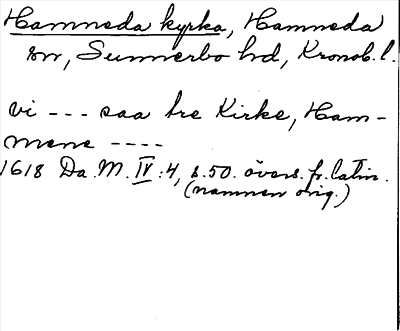 Hamneda kyrka, Hamneda
sn, Sunnerbo hd, Kronob. l.
vi --- saa tre Kirke, Ham-
mene ----
1618 Da. M. IV:4, s. 50. övers. fr. latin.
(namnen orig.)